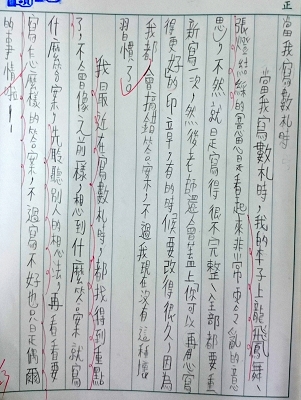 正
當我寫數札時
當我寫數札時,我的本子上龍飛鳳舞
的意思是看起來非常亂的意
思,不然就是寫得很不完整、全部都要重
新寫一次,然後老師還會蓋上你可以再用心寫
得更好的印章,有的時候要改得很久,因為
我都會搞錯答案,不過我現在沒有這種壞
習慣了。
我最近在寫數札時,都找得到重點
了,不會像之前一樣,想到什麼答案就寫
什麼答案,先聆聽別人的想法,再看看要
寫怎麼樣的答案,不過寫不好也只是偶爾
的事情啦!